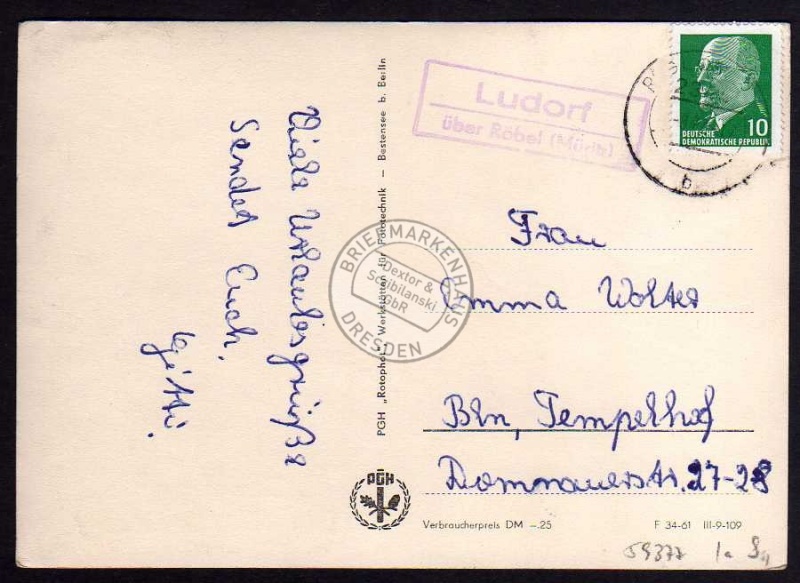 Viele Urlaubsgrüße
Sendet Euch,
Gitti.
PGH „Rotophot" Werkstätten für Fototechnik – Bestensee b. Berlin
Ludorf
über Röbel (Müritz)
DEUTSCHE
DEMOKRATISCHE REPUBLIK
10
b
Frau
Emma Wolter
Bln, Tempelhof
Domnauerstr. 27-28
PGH
Verbraucherpreis DM –.25
F 34-61 III-9-109
59377
BRIEFMARKENHAUS
Dextor &
Schibilanski
GbR
DRESDEN